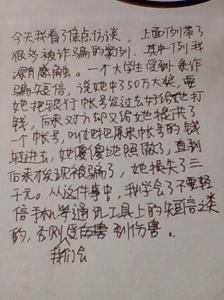 今天我看了焦点访谈，上面列举了
很多被诈骗的案例，其中一例我
深有感触。一个大学生受到亲作
骗短信，说她中了50万大奖，需
她把银行帐号发过去好给她打
钱，后来对方却又给她提供了
一个帐号，叫她把原来帐号的钱
转进去，她傻傻地照做了，直到
后来才发现被骗了，她损失了三
千元。从这件事中，我学会了不要轻
信手机等通讯工具上的短信之类
的，否则会伤害受到伤害。
我们会